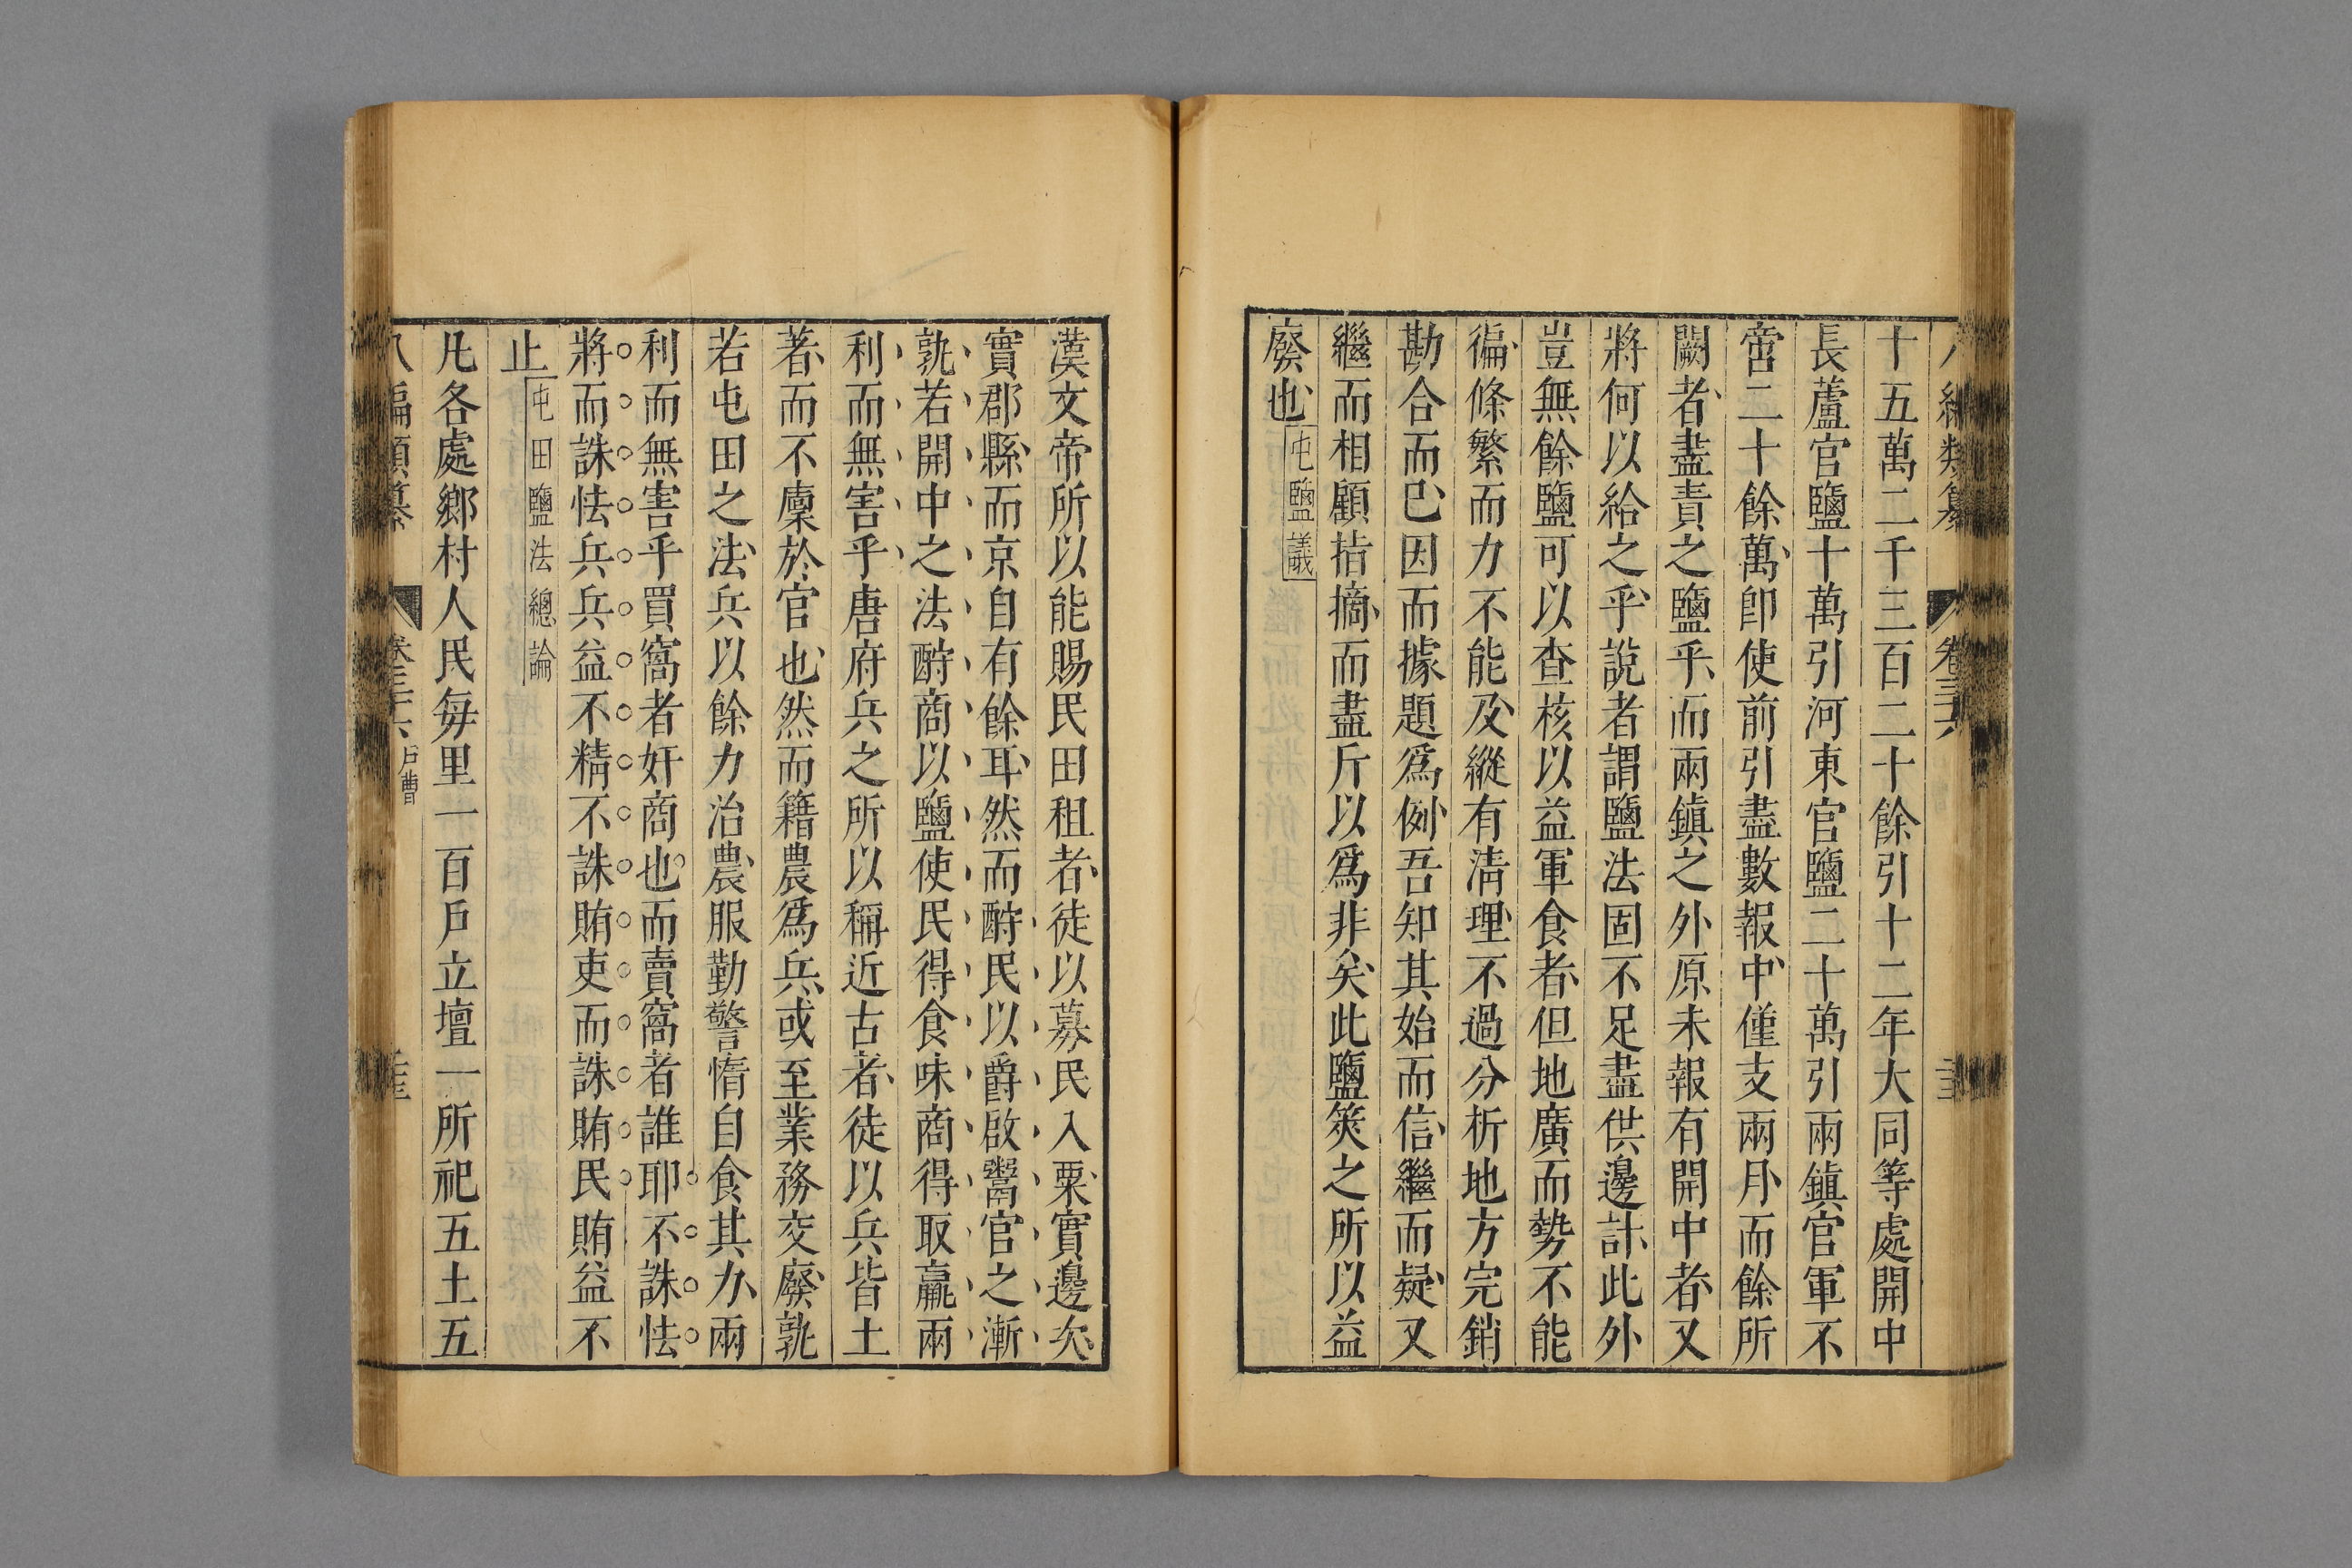 十五萬二千三百二十餘引十二年大同等處開中
長蘆官鹽十萬引河東官鹽二十萬引兩鎮官軍不
啻二十餘萬即使前引盡數報中僅支兩月而餘所
闕者盡責之鹽乎而兩鎮之外原未報有開中者又
將何以給之乎說者謂鹽法固不足盡供邊計此外
豈無餘鹽可以查核以益軍食者但地廣而勢不能
徧條繁而力不能及縱有清理不過分析地方完銷
勘合而已因而據題爲例吾知其始而信繼而疑又
繼而相顧指摘而盡斤以爲非矣此鹽筴之所以益
廢也屯鹽議
漢文帝所以能賜民田租者徒以募民入粟實邊次
實郡縣而京自有餘耳然而酧民以爵啟鬻官之漸
孰若開中之法酧商以鹽使民得食味商得取贏兩
利而無害乎唐府兵之所以稱近古者徒以兵皆土
著而不廩於官也然而籍農爲兵或至業務交廢孰
若屯田之法兵以餘力治農服勤警惰自食其力兩
利而無害乎買窩者奸商也而賣窩者誰耶不誅怯
將而誅怯兵兵益不精不誅賄吏而誅賄民賄益不
止屯田鹽法總論
凡各處鄉村人民每里一百戶立壇一所祀五土五